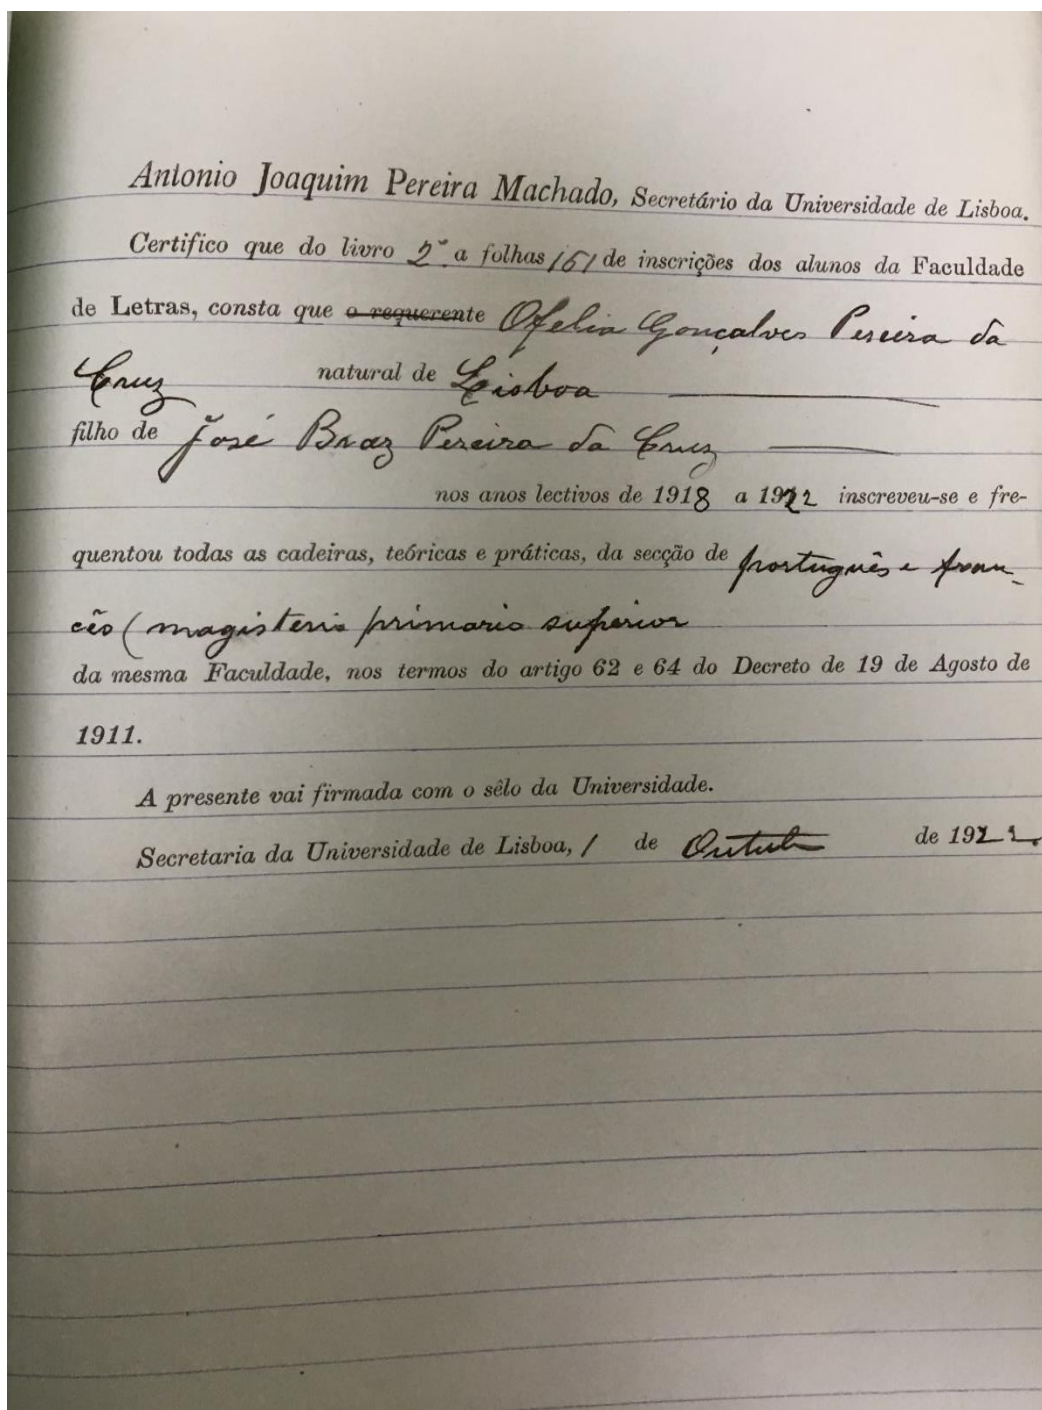 Antonio Joaquim Pereira Machado, Secretário da Universidade de Lisboa.
Certifico que do livro 2º a folhas 161 de inscrições dos alunos da Faculdade
de Letras, consta que o requerente Ofelia Gonçalves Pereira da
Cruz natural de Lisboa
filho de José Braz Pereira da Cruz
nos anos lectivos de 1918 a 1922 inscreveu-se e fre-
quentou todas as cadeiras, teóricas e práticas, da secção de português e fran-
cês (magisterio primario superior
da mesma Faculdade, nos termos do artigo 62 e 64 do Decreto de 19 de Agosto de
1911.
A presente vai firmada com o sêlo da Universidade.
Secretaria da Universidade de Lisboa, 1 de Outub de 1922.